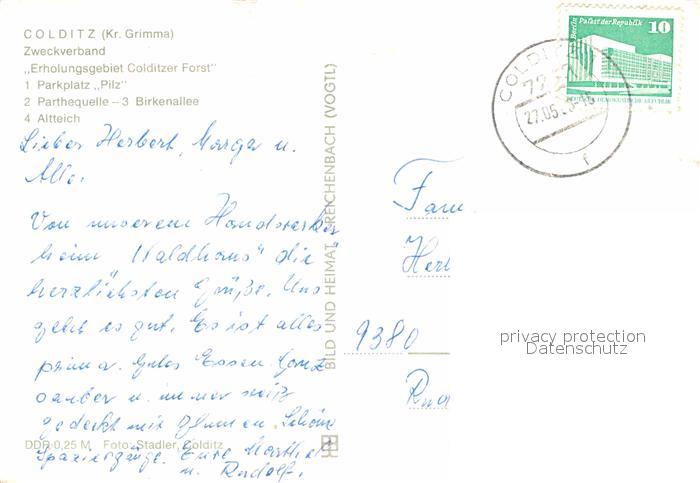 COLDITZ (Kr. Grimma)
Zweckverband
„Erholungsgebiet Colditzer Forst"
1 Parkplatz „Pilz"
2 Parthequelle – 3 Birkenallee
4 Altteich
Lieber Herbert, Marga u.
Alle.
Von unserem Handwerker
heim „Waldhaus" die
herzlichsten Grüße. Uns
geht es gut. Es ist alles
prima. Gutes Essen. Ganz
sauber u. immer
gedeckt mit Blumen. Schöne
Spaziergänge. Eure
u. Rudolf.
DDR 0,25 M Foto: Stadler, Colditz
BILD UND HEIMAT REICHENBACH (VOGTL)
Berlin Palast der Republik
10
DEUTSCHE DEMOKRATISCHE REPUBLIK
COLDITZ
27.05
f
Fam
Her
9380
privacy protection
Datenschutz